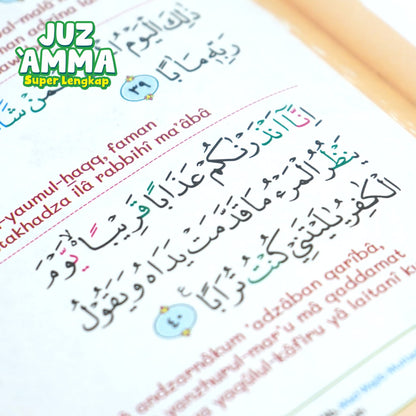 JUZ
'AMMA
Super Lengkap
ذٰلِكَ الْيَوْمُ
رَبِّهٖ مَاٰبًا ٣٩
-yaumul-haqq, faman
takhadza ilâ rabbihî ma'âbâ
اِنَّآ اَنْذَرْنٰكُمْ عَذَابًا قَرِيْبًا ەۙ يَّوْمَ
يَنْظُرُ الْمَرْءُ مَا قَدَّمَتْ يَدَاهُ وَيَقُوْلُ
الْكٰفِرُ يٰلَيْتَنِيْ كُنْتُ تُرَابًا ࣖ ٤٠
andzarnâkum 'adzâban qarîbâ,
yanzhurul-mar'u mâ qaddamat
yaqûlul-kâfiru yâ laitanî